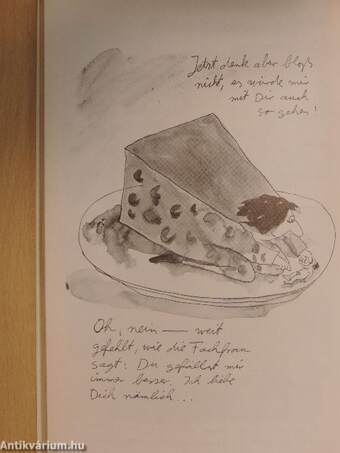 Jetzt denk aber bloß
nicht, es würde mir
mit Dir auch
so gehen!
Oh, nein — weit
gefehlt, wie die Fachfrau
sagt: Du gefällst mir
immer besser. Ich liebe
Dich nämlich...
Antikvárium.hu